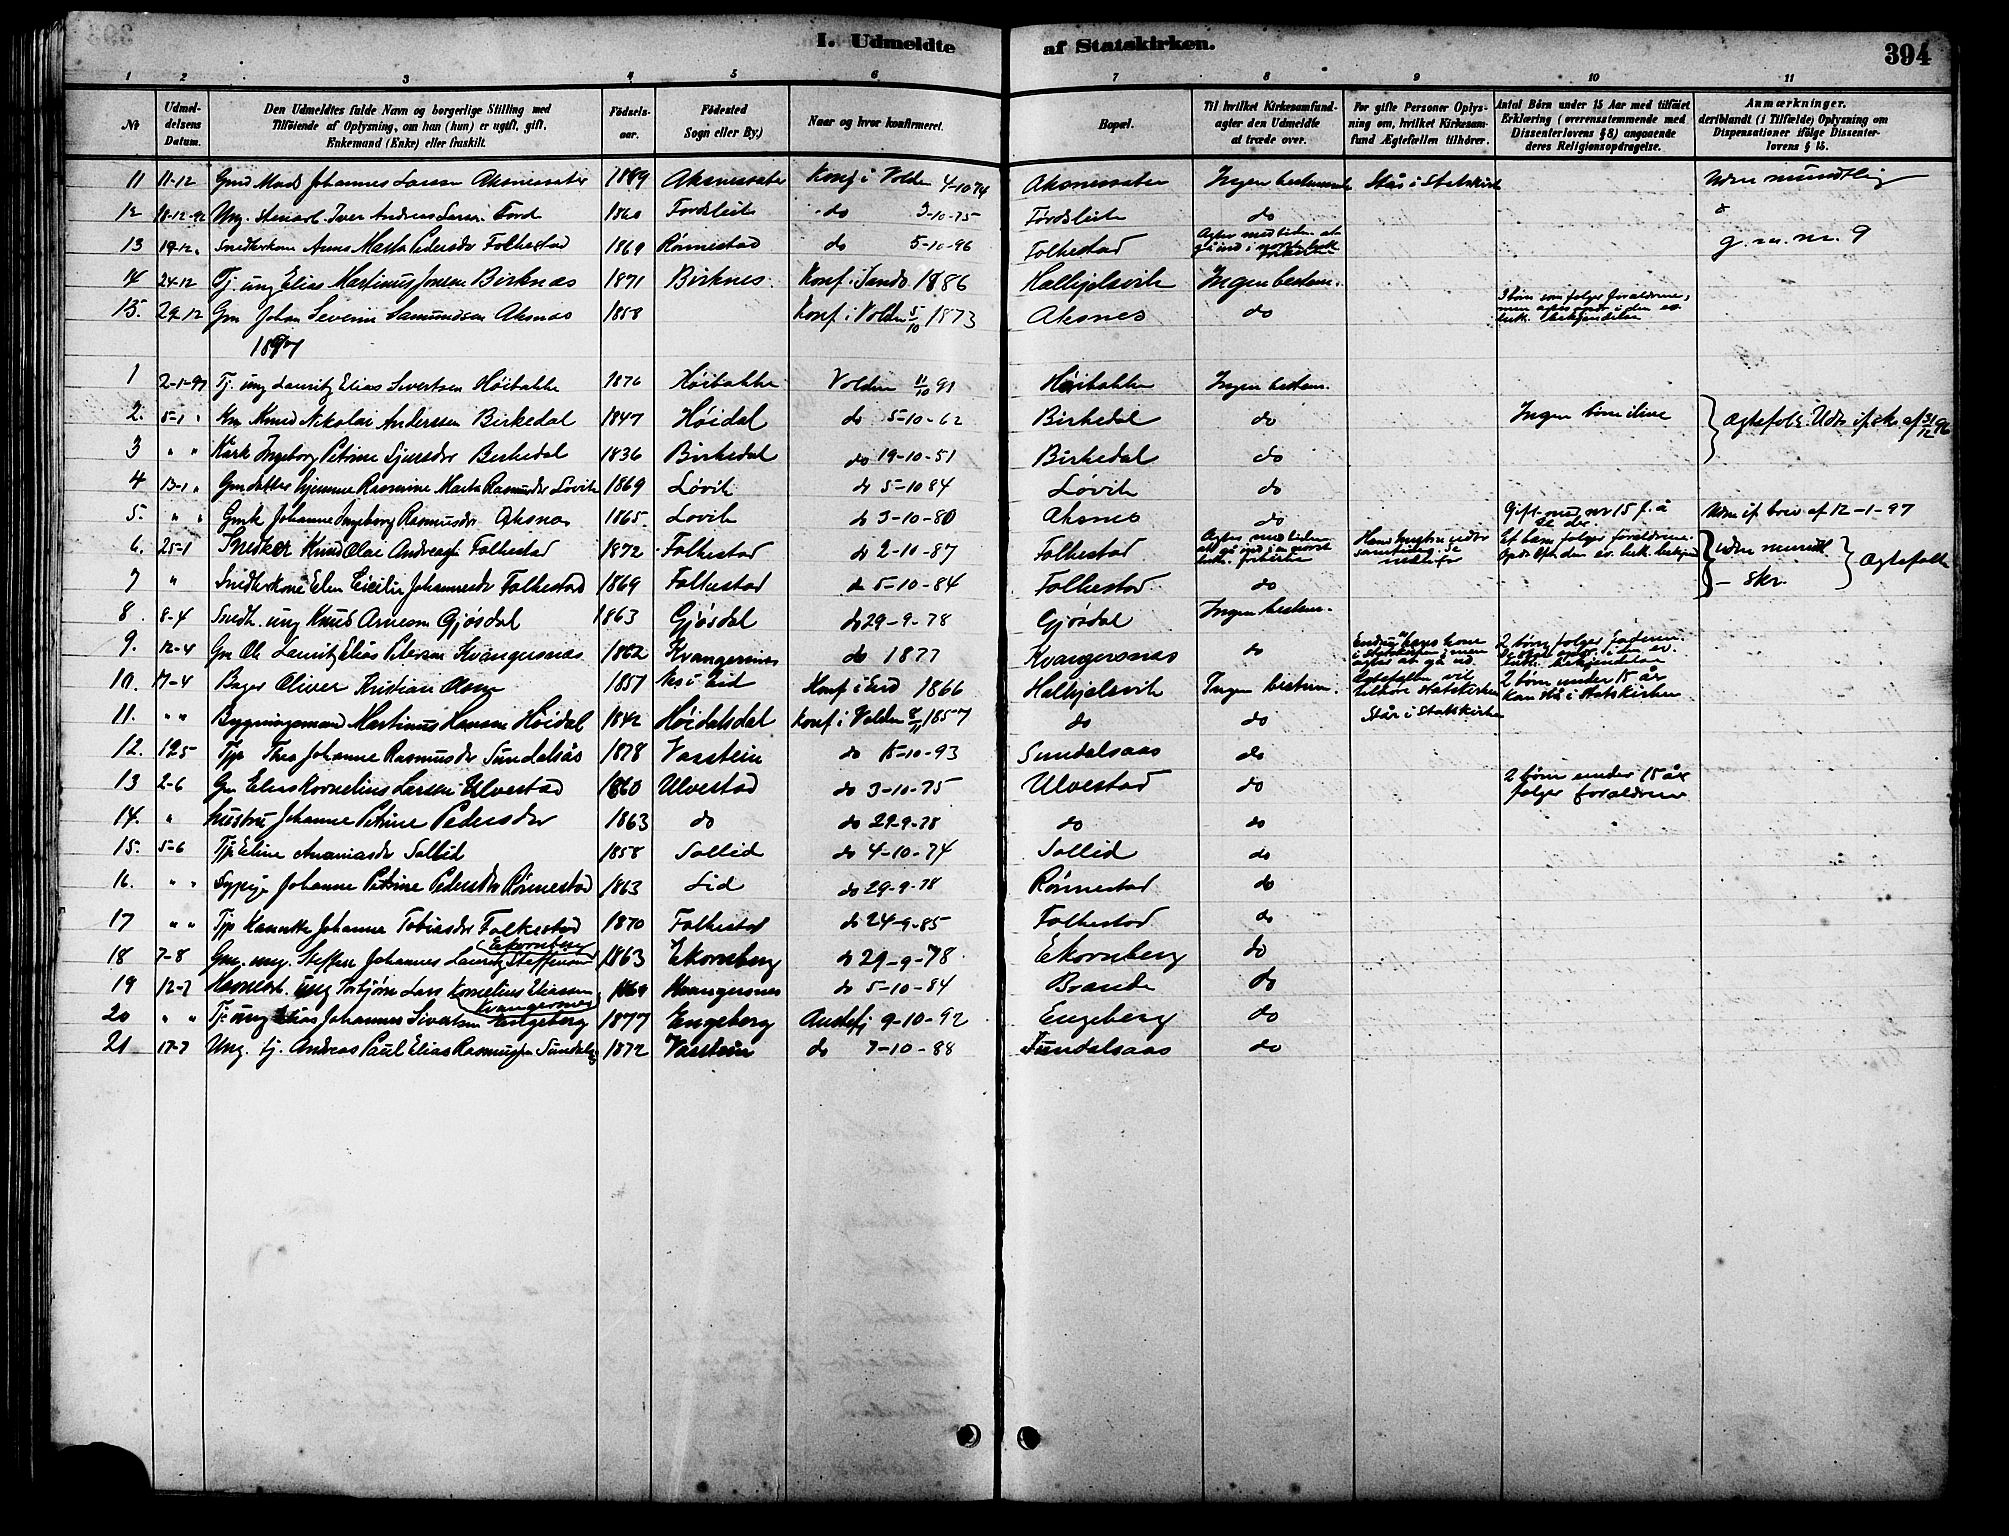 I. Udmeldte af Statskirken. 394
1 2 3 4 5 6 7 8 9 10 11
No
Udmeldelsens Datum.
Den Udmeldtes fulde Navn og borgerlige Stilling med Tilføiende af Oplysning, om han (hun) er ugift, gift, Enkemand (Enke) eller fraskilt.
Fødselsaar.
Fødested Sogn eller By.)
Naar og hvor konfirmeret.
Bopæl.
Til hvilket Kirkesamfund agter den Udmeldte at træde over.
For gifte Personer Oplysning om, hvilket Kirkesamfund Ægtefællen tilhører.
Antal Børn under 15 Aar med tilføiet Erklæring (overensstemmende med Dissenterlovens § 8) angaaende deres Religionsopdragelse.
Anmærkninger, deriblandt (i Tilfælde) Oplysning om Dispensationer ifølge Dissenterlovens § 15.
11 11-12 Johannes Larsen Aksnessæter 1889 Aksnessæter Konf i Volden 4-10 74 Aksnessæter Ingen bestemt Står i Statskirk mundtlig
12 18-12-92 Ung. Iver Andreas Larsen Førd 1860 Førdsleite do 3-10-75 Førdsleite do
13 19-12 " Snedkerkone Anne Marta Pedersdr Folkestad 1869 Rönnestad do 5-10-96 Folkestad Agter med tiden at gå ind i norsk luth. frikirke g.m. nr. 9
14 24-12 Tj. ung Elias Martinus Jonsen Birknes 1871 Birknes Konf. i Sande 1886 Hallkjelsvik Ingen bestem.
15. 29-12 Gm Johan Severin Samundsen Aksnes 1858 Konf. i Volden 5/10 1873 Aksnes do 3 børn som følger forældrene, men i den ev. luth. bekjendelse
1897
1 2-1-97 Tj. ung Lauritz Elias Sivertsen Høibakke 1876 Høibakke Volden 11/10 91 Høibakke Ingen bestem.
2. 5-1 " Knud Nikolai Anderssen Birkedal 1847 Høidal do 5-10-62 Birkedal do Ingen børn ilive Ægtefolk. Udm. if. skr. af 31/12 96
3 " " Ingeborg Petrine Sjursdr Birkedal 1836 Birkedal do 19-10-51 Birkedal do
4 13-1 " Gmdatter hjemme Rasmine Marta Rasmusdr Løvik 1869 Løvik do 5-10 84 Løvik do
5. " " Gmk Johanne Ingeborg Rasmusdr Aksnes 1865. Løvik do 3-10-80 Aksnes do Gift med nr 15 f. å Udm if. brev af 12-1-97
6. 25-1 Snedker Knud Olai Andreas Folkestad 1872 Folkestad do 2-10-87 Folkestad Agter med tiden at gå ind i en norsk luth. frikirke Hans hustru udtr samtidig. Se nedenfor Et barn følger forældrene. den ev. luth. bekjend udm mundtl
7 " Snedkerkone Elen Cicilie Johannesdr Folkestad 1869 Folkestad do 5-10-84 Folkestad do - skr. Ægtefolk
8. 8-4 Snedk. ung Knud Arneson Gjøsdal 1863 Gjøsdal do 29-9-78 Gjøsdal Ingen bestem.
9. 12-4 Gm Ole Lauritz Elias Petersen Kvangersnes 1862 Kvangersnes do 1877 Kvangersnes do Endnu hans kone i Statskirken, men agter at gå ud 2 børn følger Faderen. De skal opdr. i den ev. luth. bekjendelse
10. 17-4 Bager Oliver Kristian Olsen 1851 Nes i Eid Konf i Eid 1866 Halkjelsvik Ingen bestem. Ægtefællen vil tilhøre Statskirken 2 børn under 15 år kan stå i Statskirken
11. " " Bygningsmand Martinus Hansen Höidal 1842 Höidalsdal Konf i Volden 8/11 1857 do do Står i Statskirken
12. 12-5 Tjp Thea Johanne Rasmusdr Sundalsås 1878 Vasstein do 15-10-93 Sundalsaas do
13 2-6 Gm Elias Kornelius Larsen Ulvestad 1860 Ulvestad do 3-10-75 Ulvestad do 2 børn under 15 år følger forældrene
14. " hustru Johanne Petrine Pedersdr 1863 do do 29-9-78 do do
15. 5-6 Tjp Eline Ananiasdr Sollid 1858 Sollid do 4-10-74 Sollid do
16. " " Sypige Johanne Petrine Pedersdr Rönnestad 1863 Lid do 29-9-78 Rönnestad do
17 " " Tjp Johanne Tobiasdr Folkestad 1870 Folkestad do 24-9-85 Folkestad do
18 7-8 Gm. ung. Steffen Johannes Lauritz Steffenson Ekornberg 1863 Ekornberg do 29-9-78 Ekornberg do
19 12-7 ung Torbjørn Lars Kornelius Eliassen Kvangersnes 1869 Kvangersnes do 5-10-84 Brande do
20 " " Tj. ung Elias Johannes Sivertsen Engeberg 1877 Engeberg Austefj 9-10-92 Engeberg do
21 17-7 Ung. tj. Andreas Paul Elias Rasmussen Sundalsås 1872 Vasstein do 7-10-88 Sundalsaas do